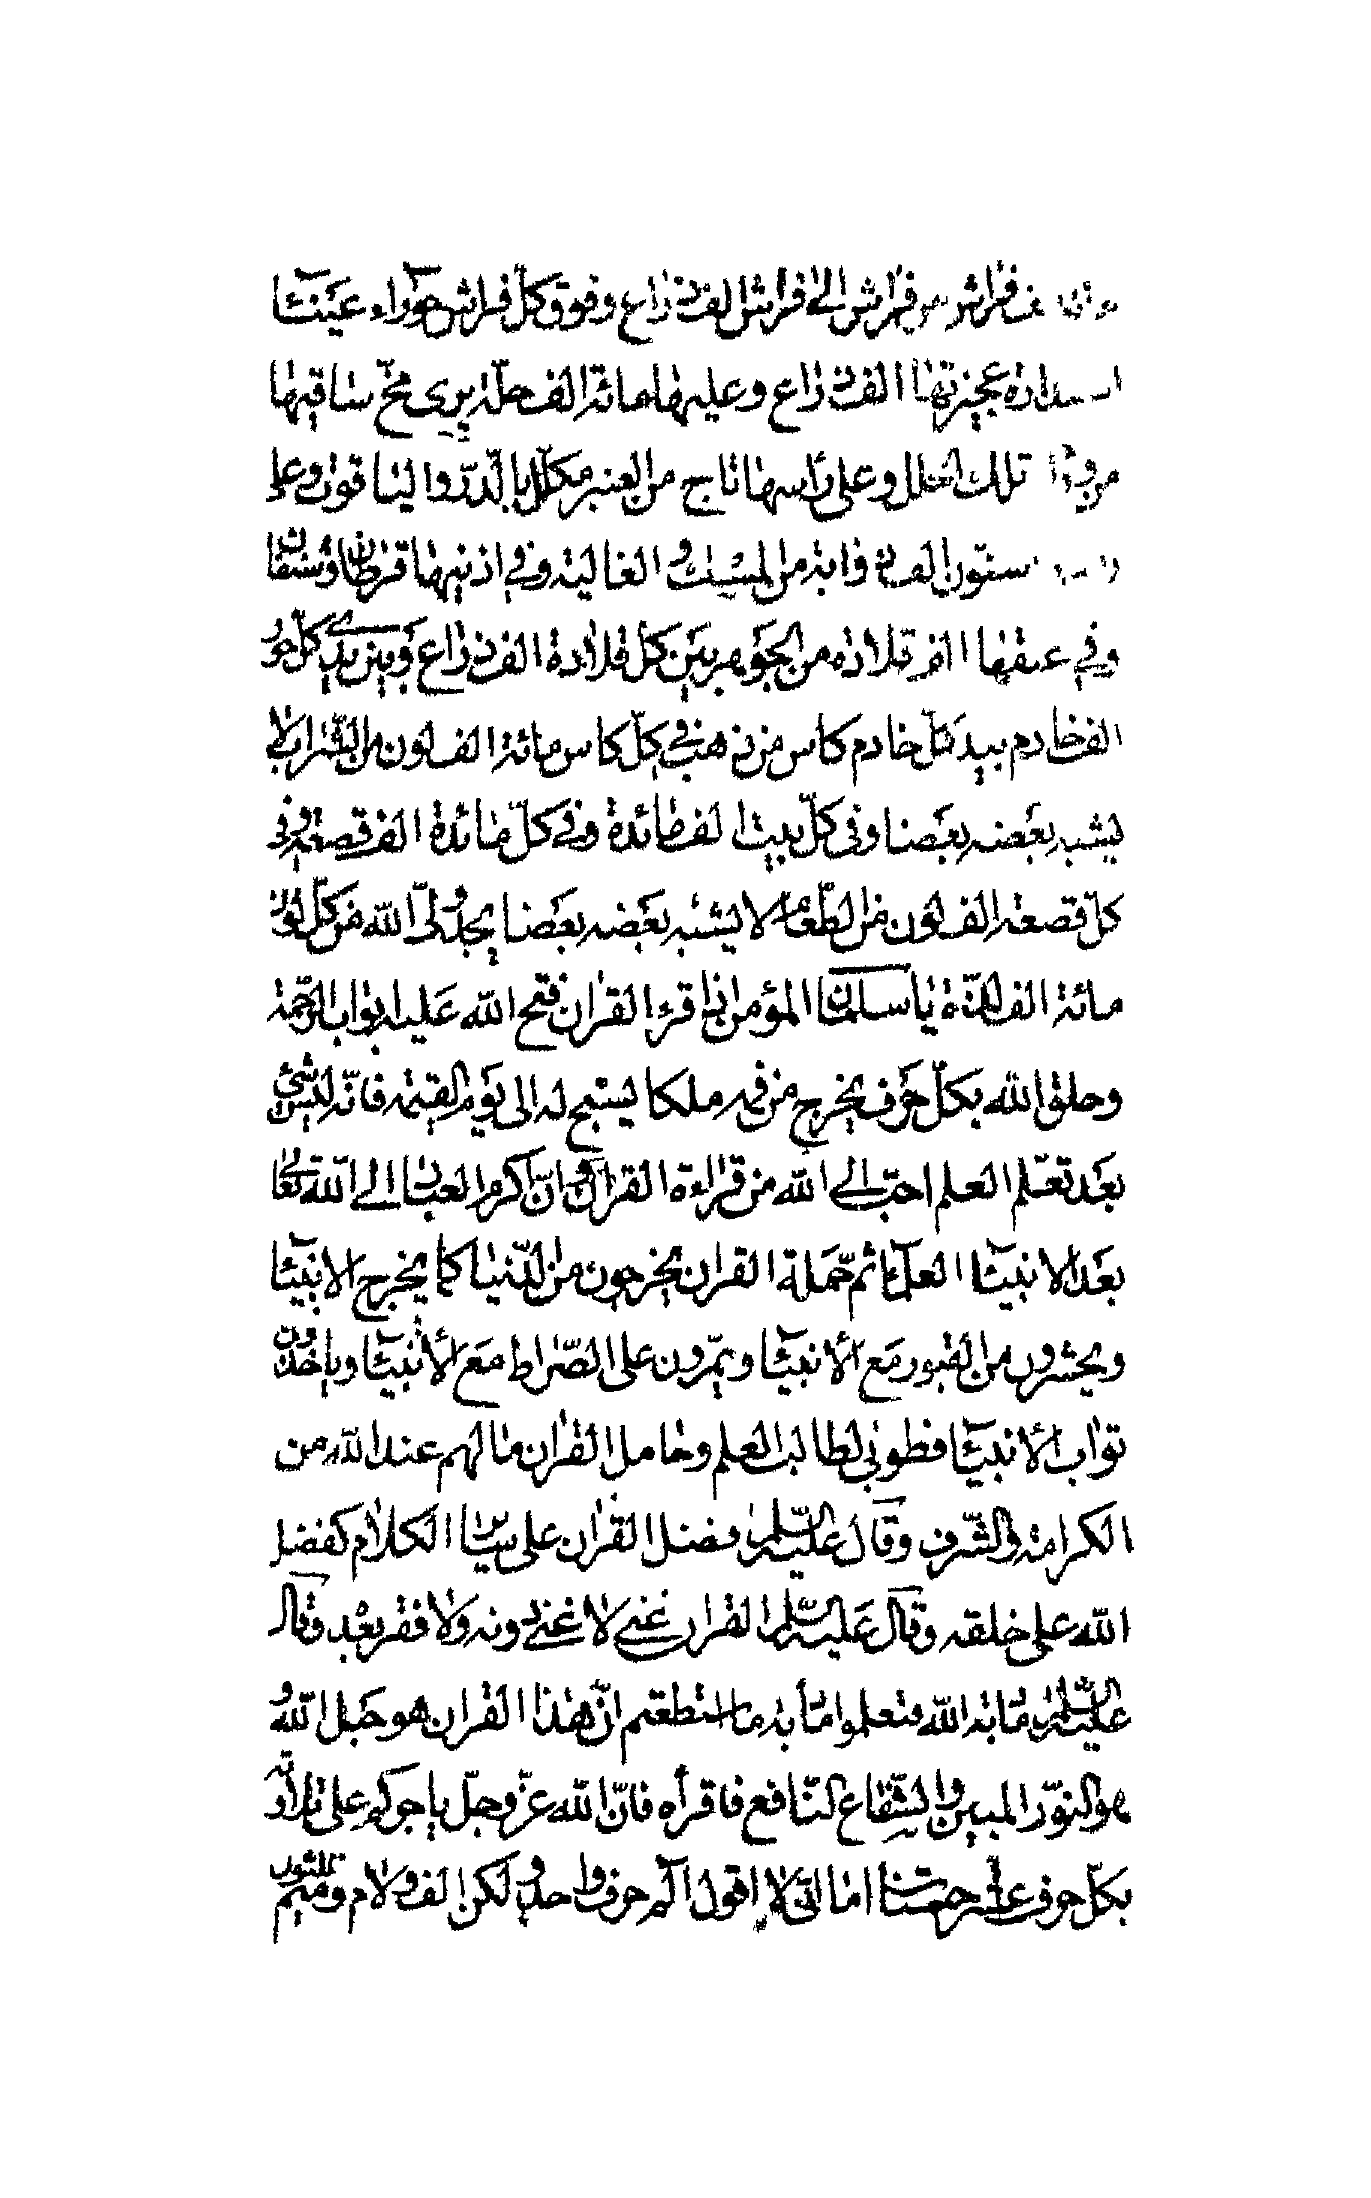 فراش من فراش الى فراش الف ذراع وفوق كلّ فراش حوراء عيناء
استدارة عجيزتها الف ذراع وعليها مائة الف حلّة يرى مخّ ساقيها
من وراء تلك الحلل وعلى رأسها تاج من العنبر مكلّل بالدّر واليٰاقوت وعلى
ستّون الف ذوابة من المسك و الغالية وفي اذنيها قرطان وشنفان
وفي عنقها الف قلادة من الجوهر بين كلّ قلادة الف ذراع وبين يدي كلّ حور
الف خادم بيد كلّ خادم كاس من ذهب في كلّ كاس مائة الف لون من الشّراب لا
يشبه بعضه بعضا وفي كلّ بيت الف مائدة وفي كلّ مائدة الف قصعة وفي
كلّ قصعة الف لون من الطّعام لا يشبه بعضه بعضا يجد ولىّ الله من كلّ لون
مائة الف لذّة يا سلمان المؤمن اذا قرء القران فتح الله عليه ابواب الرّحمة
وخلق الله بكلّ حرف يخرج من فمه ملكا يسبّح له الى يوم القيمة فانّه ليس شئ
بعد تعلّم العلم احبّ الى الله من قراءة القران وانّ اكرم العباد الى الله تعالى
بعد الانبيٰاء العلماء ثم حملة القران يخرجون من الدّنيا كما يخرج الانبيٰاء
ويحشرون من القبور مع الأنبيٰاء ويمّرون على الصّراط مع الأنبيٰاء وياخذون
ثواب الأنبيٰاء فطوبى لطالب العلم وحامل القران ما لهم عند الله من
الكرامة والشّرف وقال عليه السّلم فضل القران على ساير الكلام كفضل
الله على خلقه وقال عليه السّلم القران غنى لا غنى دونه ولا فقر بعده وقال
عليه السّلم القران مأدبة الله فتعلموا مأدبته ما استطعتم انّ هذا القران هو حبل الله و
هو النّور المبين والشّفاء النّافع فاقرأه فانّ الله عزّ وجلّ ياجركم على تلاوته
بكلّ حرف عشر حسنات اما انّى لا اقول آلم حرف واحد و لكن الف ولام وميم ثلثون